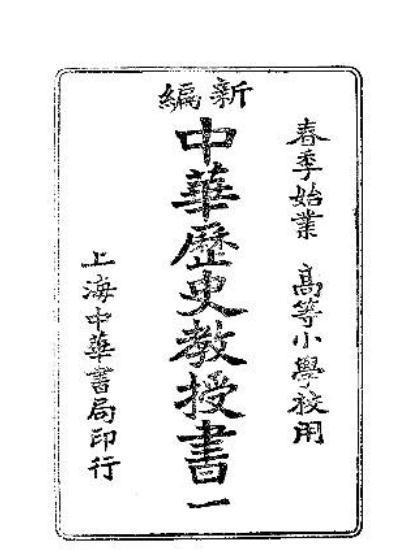 春季始業　高等小學校用
新編
中華歷史教授書一
上海中華書局印行